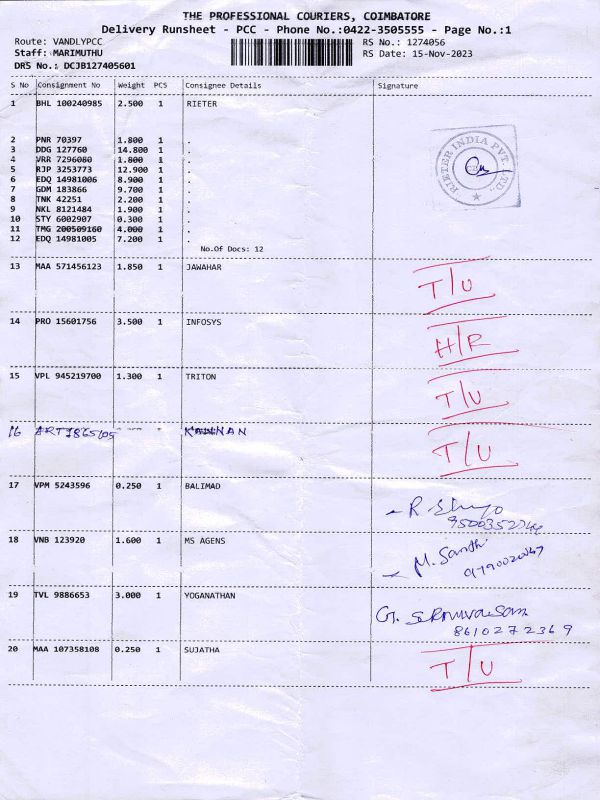 THE PROFESSIONAL COURIERS, COIMBATORE
Delivery Runsheet - PCC - Phone No.:0422-3505555 - Page No.:1
Route: VANDLYPCC RS No.: 1274056
Staff: MARIMUTHU RS Date: 15-Nov-2023
DRS No.: DCJB127405601
S No Consignment No Weight PCS Consignee Details Signature
1 BHL 100240985 2.500 1 RIETER
2 PNR 70397 1.800 1 .
3 DDG 127760 14.800 1 .
4 VRR 7296080 1.800 1 .
5 RJP 3253773 12.900 1 .
6 EDQ 14981006 8.900 1 .
7 GDM 183866 9.700 1 .
8 TNK 42251 2.200 1 .
9 NKL 8121484 1.900 1 .
10 STY 6002907 0.300 1 .
11 TMG 200509160 4.000 1 .
12 EDQ 14981005 7.200 1 .
RIETER INDIA PVT. LTD.,
No.Of Docs: 12
13 MAA 571456123 1.850 1 JAWAHAR T/U
14 PRO 15601756 3.500 1 INFOSYS H/R
15 VPL 945219700 1.300 1 TRITON T/U
16 KANNAN T/U
17 VPM 5243596 0.250 1 BALIMAD R.
18 VNB 123920 1.600 1 MS AGENS M. Santhi
19 TVL 9886653 3.000 1 YOGANATHAN G.
8610272369
20 MAA 107358108 0.250 1 SUJATHA T/U